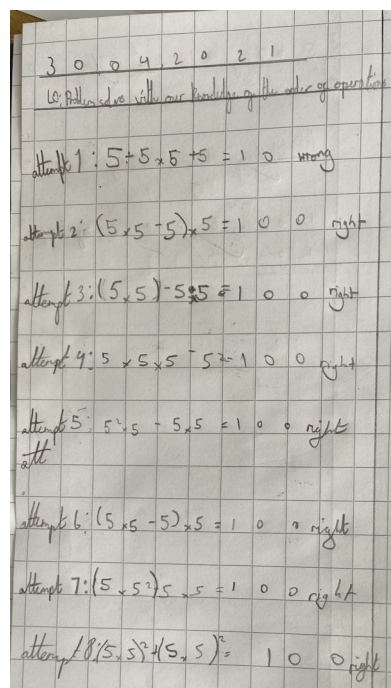 30 04.2021
LO: Problem solve with our knowledge of the order of operations
attempt 1: 5÷5×5+5 = 10 wrong
attempt 2: (5×5-5)×5 = 100 right
attempt 3: (5×5)-5×5 = 100 right
attempt 4: 5×5×5-5² = 100 right
attempt 5: 5²×5 - 5×5 = 100 right
att
attempt 6: (5×5-5)×5 = 100 right
attempt 7: (5×5²)5×5 = 100 right
attempt 8: (5×5)²+(5×5)² = 100 right